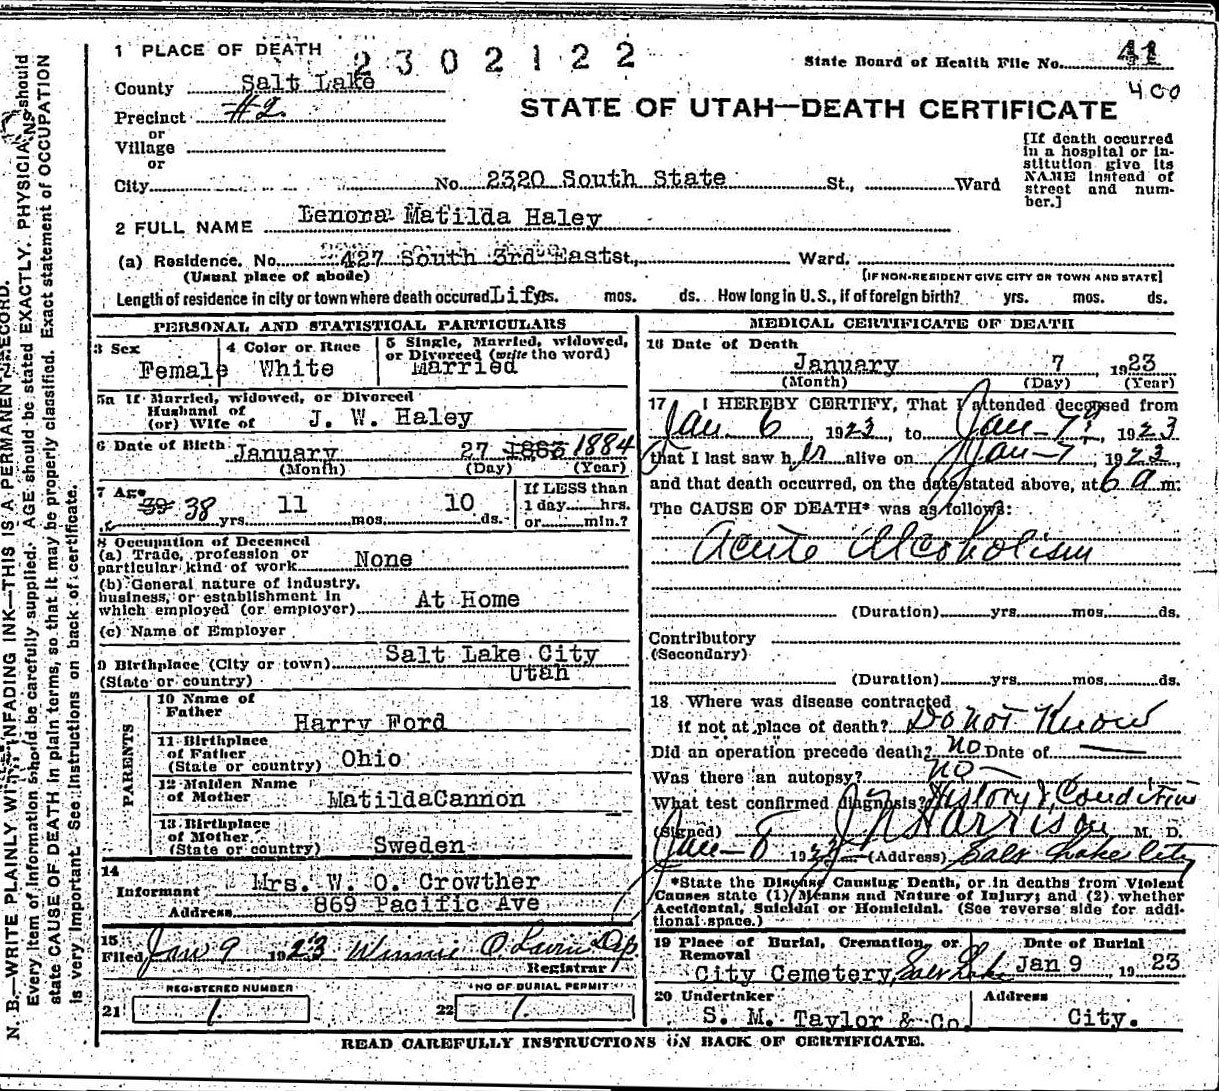 1 PLACE OF DEATH
2302122
State Board of Health File No. 41
400
County Salt Lake
STATE OF UTAH—DEATH CERTIFICATE
Precinct #2
or
Village
or
City No. 2320 South State St., Ward
[If death occurred in a hospital or institution give its NAME instead of street and number.]
2 FULL NAME Lenora Matilda Haley
(a) Residence. No. 427 South 3rd East St., Ward.
(Usual place of abode) [IF NON-RESIDENT GIVE CITY OR TOWN AND STATE]
Length of residence in city or town where death occured Life yrs. mos. ds. How long in U. S., if of foreign birth? yrs. mos. ds.
PERSONAL AND STATISTICAL PARTICULARS
3 Sex
Female
4 Color or Race
White
5 Single, Married, widowed, or Divorced (write the word)
Married
5a If Married, widowed, or Divorced
Husband of
(or) Wife of J. W. Haley
6 Date of Birth January 27 1883 1884
(Month) (Day) (Year)
7 Age
39 38 yrs. 11 mos. 10 ds.
If LESS than
1 day hrs.
or min.?
8 Occupation of Deceased
(a) Trade, profession or
particular kind of work None
(b) General nature of industry,
business, or establishment in
which employed (or employer) At Home
(c) Name of Employer
9 Birthplace (City or town) Salt Lake City
(State or country) Utah
PARENTS
10 Name of
Father Harry Ford
11 Birthplace
of Father
(State or country) Ohio
12 Maiden Name
of Mother Matilda Cannon
13 Birthplace
of Mother
(State or country) Sweden
14
Informant Mrs. W. O. Crowther
Address 869 Pacific Ave
15
Filed Jan 9 1923 Winnie O. Dep.
Registrar
REGISTERED NUMBER
21 1
NO OF BURIAL PERMIT
22 1.
MEDICAL CERTIFICATE OF DEATH
16 Date of Death
January 7, 1923
(Month) (Day) (Year)
17 I HEREBY CERTIFY, That I attended deceased from
Jan 6 1923, to Jan-7, 1923
that I last saw her alive on Jan-7, 1923,
and that death occurred, on the date stated above, at 6 a m.
The CAUSE OF DEATH* was as follows:
Acute Alcoholism
(Duration) yrs. mos. ds.
Contributory
(Secondary)
(Duration) yrs. mos. ds.
18 Where was disease contracted
if not at place of death? Do not Know
Did an operation precede death? no Date of —
Was there an autopsy? no
What test confirmed diagnosis? History & Condition
(Signed) J N Harrison M. D.
Jan-8 1923 (Address) Salt Lake City
*State the Disease Causing Death, or in deaths from Violent
Causes state (1) Means and Nature of Injury; and (2) whether
Accidental, Suicidal or Homicidal. (See reverse side for addi-
tional space.)
19 Place of Burial, Cremation, or
Removal
City Cemetery, Salt Lake
Date of Burial
Jan 9, 1923
20 Undertaker
S. M. Taylor & Co.
Address
City.
READ CAREFULLY INSTRUCTIONS ON BACK OF CERTIFICATE.
N. B.—WRITE PLAINLY WITH UNFADING INK—THIS IS A PERMANENT RECORD.
Every item of information should be carefully supplied. AGE should be stated EXACTLY. PHYSICIANS should
state CAUSE OF DEATH in plain terms, so that it may be properly classified. Exact statement of OCCUPATION
is very important. See instructions on back of certificate.